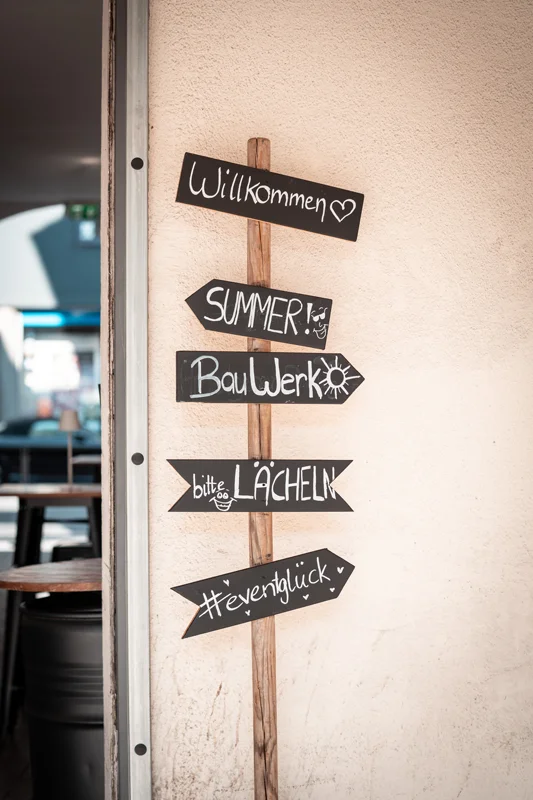 Willkommen
SUMMER!
BauWerk
bitte LÄCHELN
#eventglück